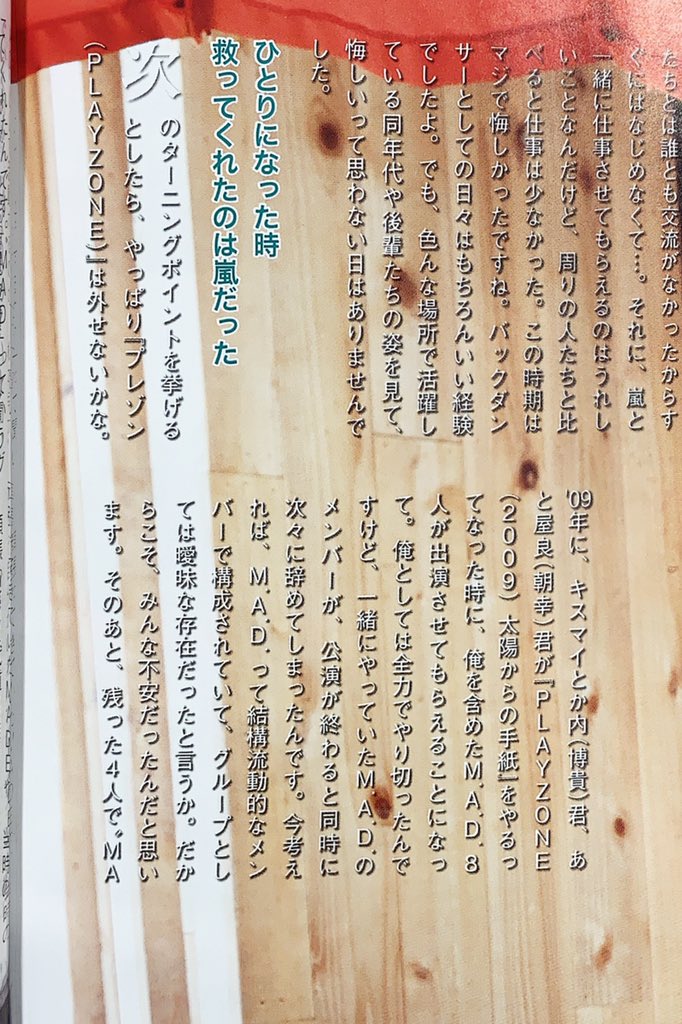 たちとは誰とも交流がなかったからす
ぐにはなじめなくて…。それに、嵐と
一緒に仕事させてもらえるのはうれし
いことなんだけど、周りの人たちと比
べると仕事は少なかった。この時期は
マジで悔しかったですね。バックダン
サーとしての日々はもちろんいい経験
でしたよ。でも、色んな場所で活躍し
ている同年代や後輩たちの姿を見て、
悔しいって思わない日はありませんで
した。
ひとりになった時
救ってくれたのは嵐だった
次のターニングポイントを挙げる
としたら、やっぱり『プレゾン
（PLAYZONE）』は外せないかな。
'09年に、キスマイとか内（博貴）君、あ
と屋良（朝幸）君が『PLAYZONE
（2009）太陽からの手紙』をやるっ
てなった時に、俺を含めたM.A.D.8
人が出演させてもらえることになっ
て。俺としては全力でやり切ったんで
すけど、一緒にやっていたM.A.D.の
メンバーが、公演が終わると同時に
次々に辞めてしまったんです。今考え
れば、M.A.D.って結構流動的なメン
バーで構成されていて、グループとし
ては曖昧な存在だったと言うか。だか
らこそ、みんな不安だったんだと思い
ます。そのあと、残った4人で“MA